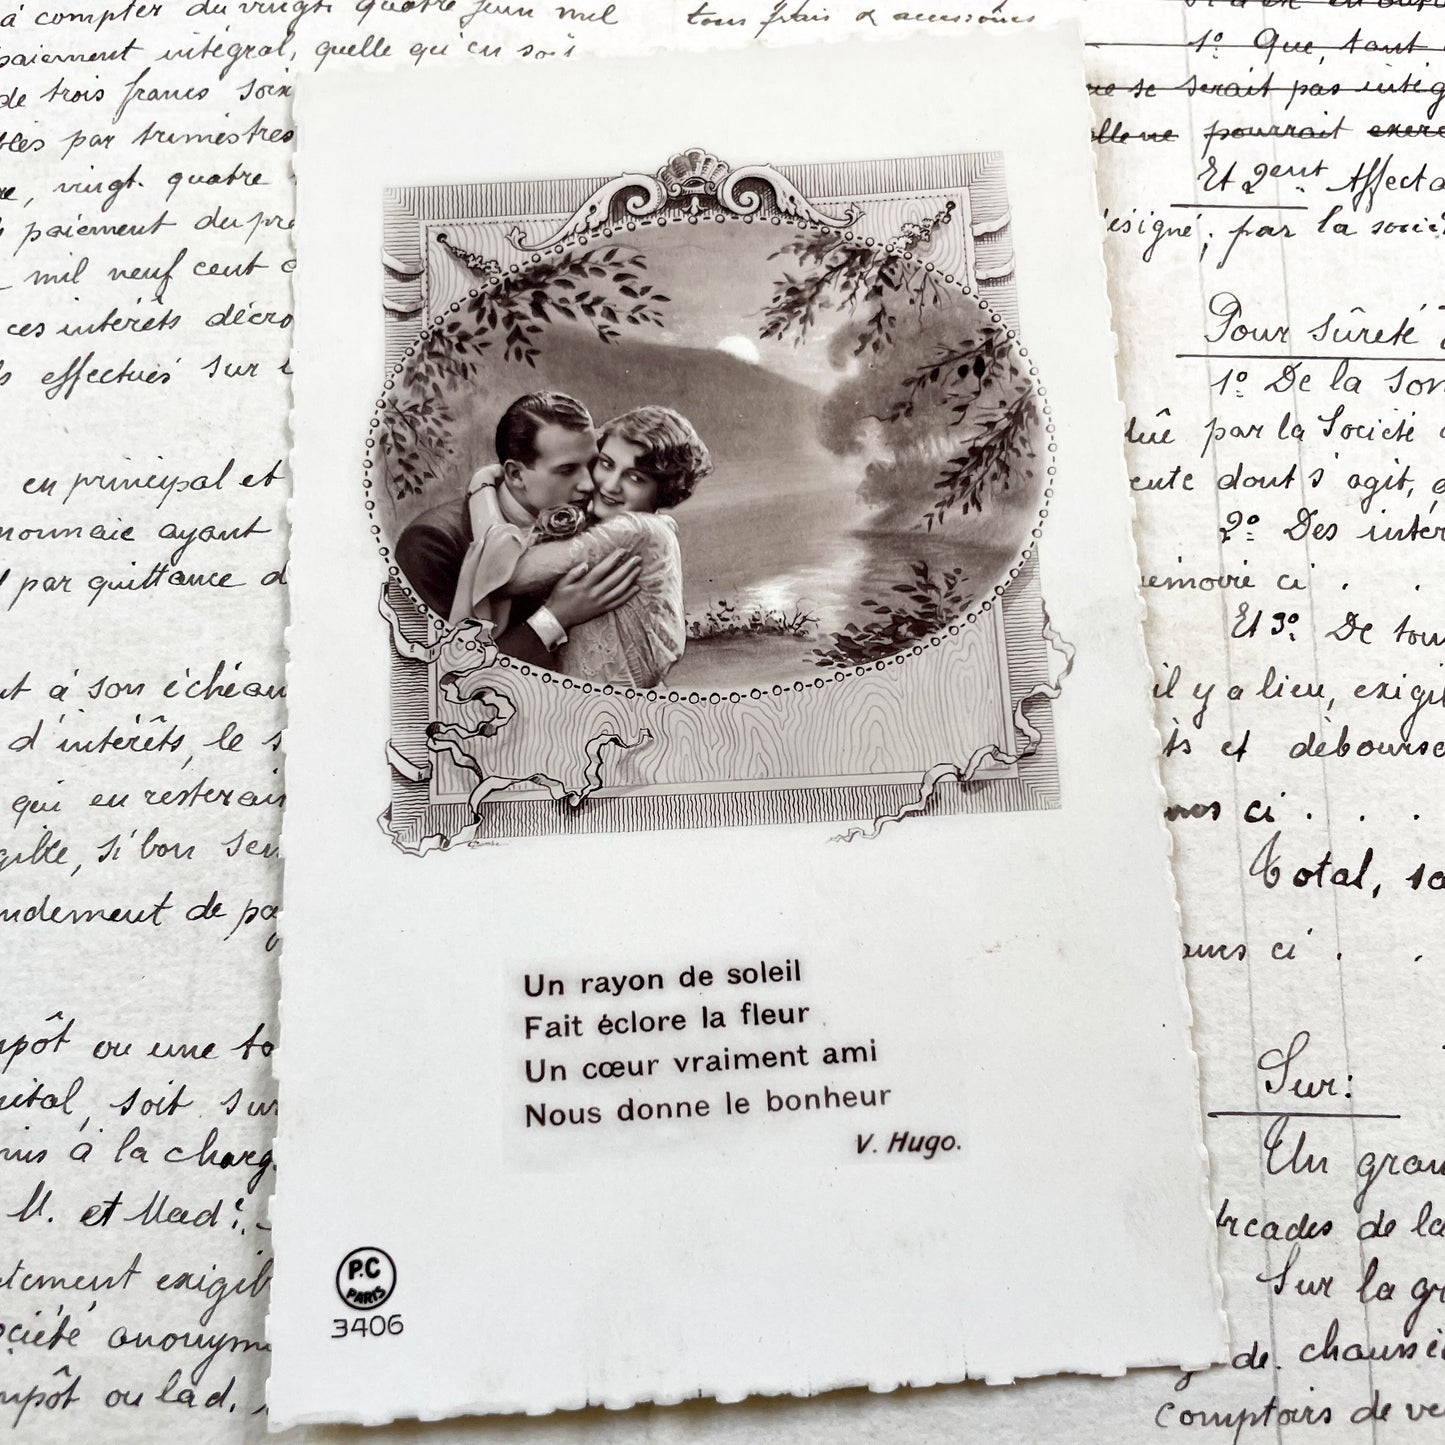 à compter du vingt quatre Juin mil
paiement intégral, quelle qu'en soit
de trois francs soix
par trimestres
vingt quatre
paiement du pre
mil neuf cent
ces intérêts décro
effectués sur
en principal et
monnaie ayant
par quittance d
à son échéan
d'intérêts, le s
qui en resterais
gible, si bon sem
ndement de pa
mpôt ou une ta
pital, soit sur
mis à la charg
M. et Mad.
tement exigib
ociété anonyme
mpôt ou lad.
tous frais & accessoires
1º Que, tant
ne se serait pas intég
elle ne pourrait exerc
Et 2ent Affecta
ésigné, par la socié
Pour sûreté
1º De la Som
dûe par la Société
ente dont s'agit,
2º Des intér
mémoire ci . .
Et 3º De tou
il y a lieu, exigi
ts et débourse
ci . . .
Total, so
ancs ci . .
Sur:
Un gran
arcades de la
Sur la gr
de chaussé
comptoirs de ve
Un rayon de soleil
Fait éclore la fleur
Un cœur vraiment ami
Nous donne le bonheur
V. Hugo.
P.C
PARIS
3406